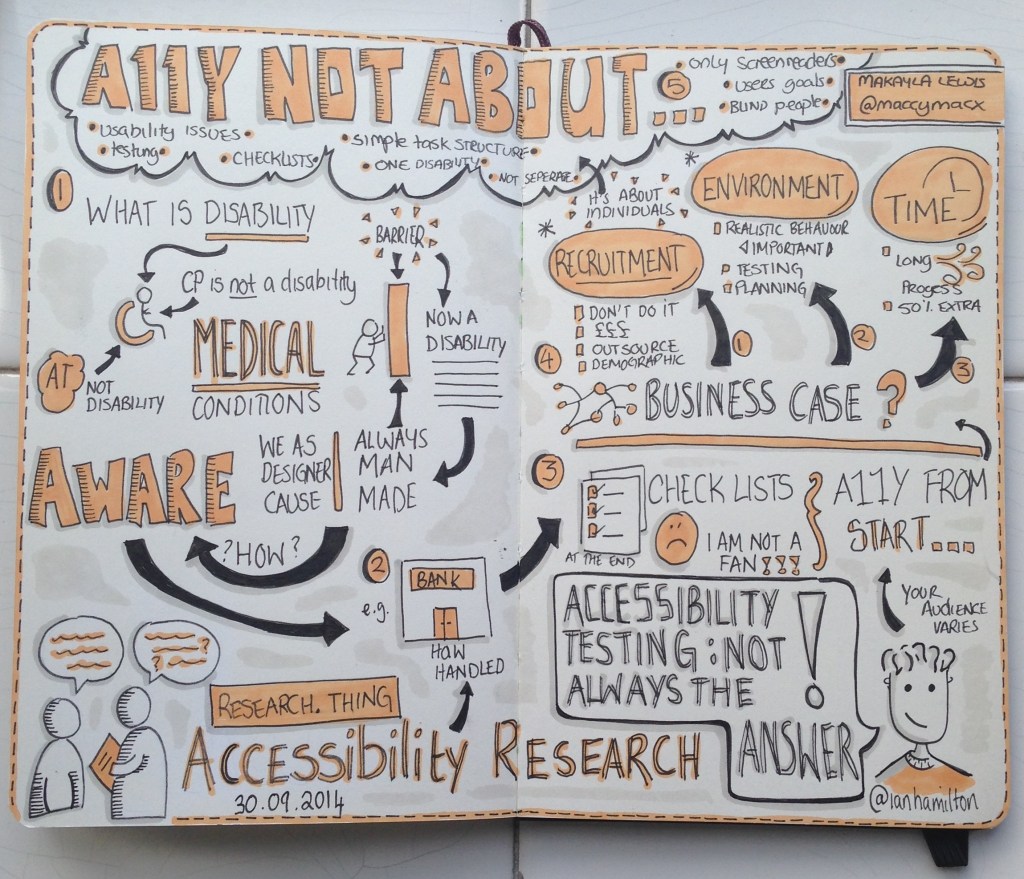 A11Y NOT ABOUT...
5
only screenreaders
users goals
BLIND people
MAKAYLA LEWIS
@maccymacx
usability issues
testing
CHECKLISTS
simple task structure
ONE DISABILITY
NOT SEPERATE
1
WHAT IS DISABILITY
CP is not a disability
AT
NOT
DISABILITY
MEDICAL
CONDITIONS
BARRIER
NOW A
DISABILITY
ALWAYS
MAN
MADE
WE AS
DESIGNER
CAUSE
AWARE
?HOW?
2
e.g.
BANK
HOW
HANDLED
RESEARCH.THING
ACCESSIBILITY RESEARCH
30.09.2014
3
AT THE END
CHECKLISTS
I AM NOT A
FAN!!!
A11Y FROM
START...
YOUR
AUDIENCE
VARIES
ACCESSIBILITY
TESTING: NOT
ALWAYS THE
ANSWER
!
@ianhamilton
4
BUSINESS CASE ?
1
2
3
* RECRUITMENT
DON'T DO IT
£££
OUTSOURCE
DEMOGRAPHIC
IT'S ABOUT
INDIVIDUALS
* ENVIRONMENT
REALISTIC BEHAVOUR
IMPORTANT
TESTING
PLANNING
TIME
LONG
PROGESS
50% EXTRA